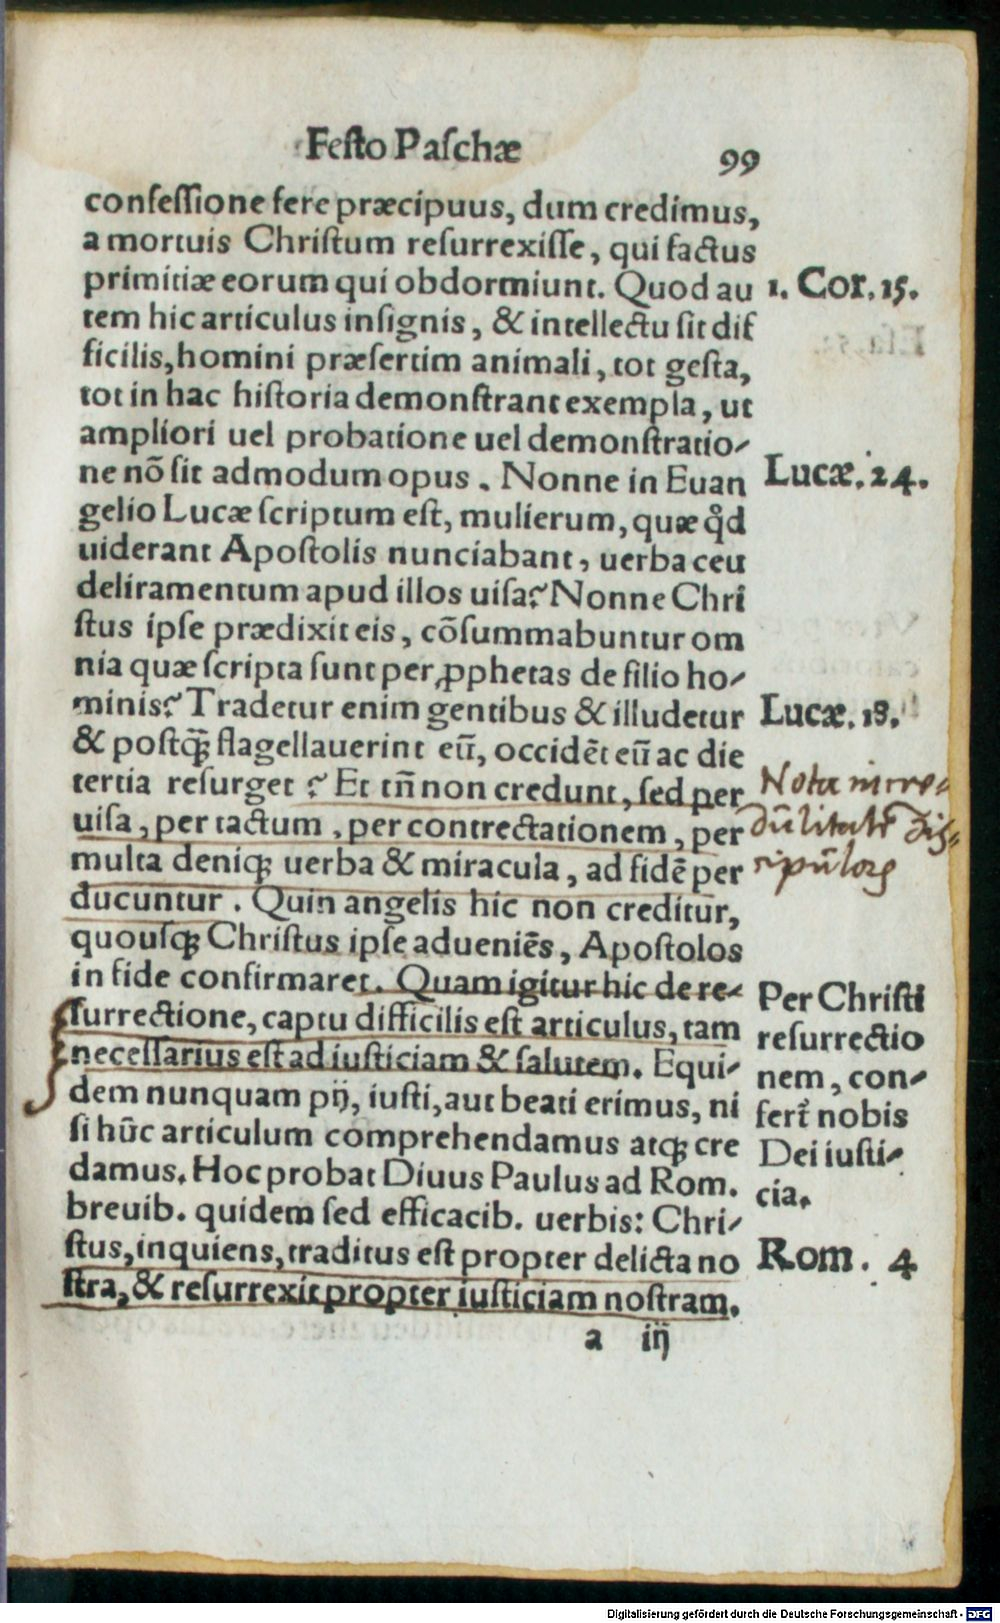 Festo Paschæ
99
confessione fere præcipuus, dum credimus,
a mortuis Christum resurrexisse, qui factus
primitiæ eorum qui obdormiunt. Quod au
1. Cor. 15.
tem hic articulus insignis, & intellectu sit dif
ficilis, homini præsertim animali, tot gesta,
tot in hac historia demonstrant exempla, ut
ampliori uel probatione uel demonstratio-
ne nõ sit admodum opus. Nonne in Euan
Lucæ. 24.
gelio Lucæ scriptum est, mulierum, quæ qd
uiderant Apostolis nunciabant, uerba ceu
deliramentum apud illos uisa? Nonne Chri
stus ipse prædixit eis, cõsummabuntur om
nia quæ scripta sunt per ꝓphetas de filio ho-
minis? Tradetur enim gentibus & illudetur
Lucæ. 18.
& postq̃ꝫ flagellauerint eũ, occidẽt eũ ac die
tertia resurget? Et tñ non credunt, sed per
uisa, per tactum, per contrectationem, per
multa deniqꝫ uerba & miracula, ad fidẽ per
Nota incre-
dũlitatẽ dis-
cipũlorꝫ
ducuntur. Quin angelis hic non creditur,
quousqꝫ Christus ipse adueniẽs, Apostolos
in fide confirmaret. Quam igitur hic de re-
surrectione, captu difficilis est articulus, tam
necessarius est ad iusticiam & salutem. Equi-
dem nunquam pij, iusti, aut beati erimus, ni
si hũc articulum comprehendamus atqꝫ cre
damus. Hoc probat Diuus Paulus ad Rom.
Per Christi
resurrectio
nem, con-
fert nobis
Dei iusti-
cia.
breuib. quidem sed efficacib. uerbis: Chri-
stus, inquiens, traditus est propter delicta no
Rom. 4
stra, & resurrexit propter iusticiam nostram.
a iij
Digitalisierung gefördert durch die Deutsche Forschungsgemeinschaft - DFG